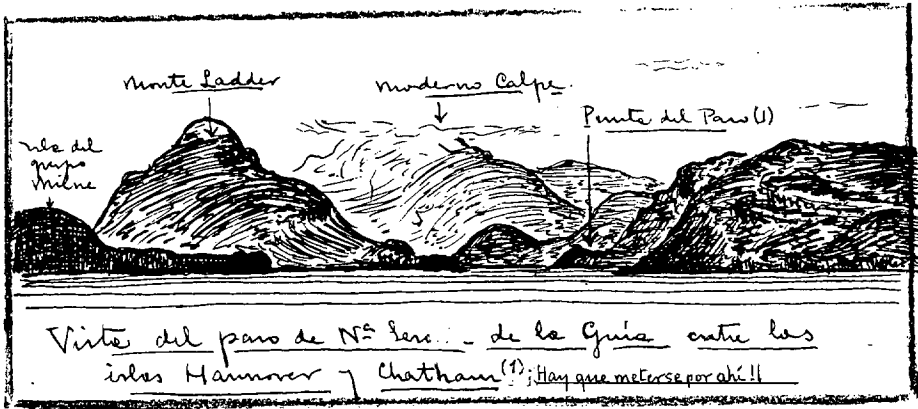 Monte Ladder
Moderno Calpe
Punta del Paso (1)
Isla del
grupo
Milne
Vista del paso de Nª Señ... de la Guía entre las
islas Hannover y Chatham (1); Hay que meterse por ahí!!